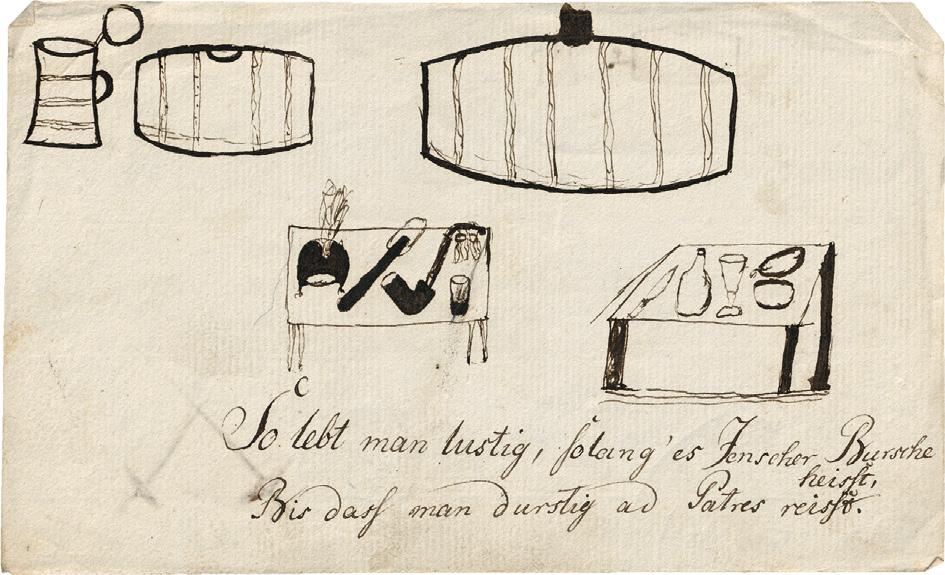 So lebt man lustig, solang' es Jenscher Bursche
heisst,
Bis dass man durstig ad Patres reisst.